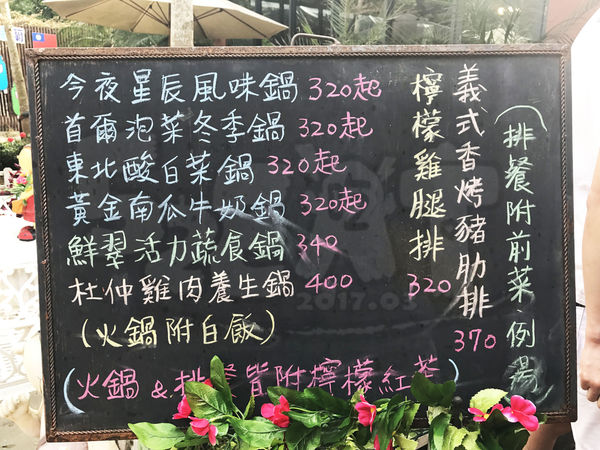 今夜星辰風味鍋 320起
首爾泡菜冬季鍋 320起
東北酸白菜鍋 320起
黃金南瓜牛奶鍋 320起
鮮翠活力蔬食鍋 340
杜仲雞肉養生鍋 400
(火鍋附白飯)
(火鍋&排餐皆附檸檬紅茶)
(排餐附前菜、例湯)
義式香烤豬肋排 370
檸檬雞腿排 320
2017.03